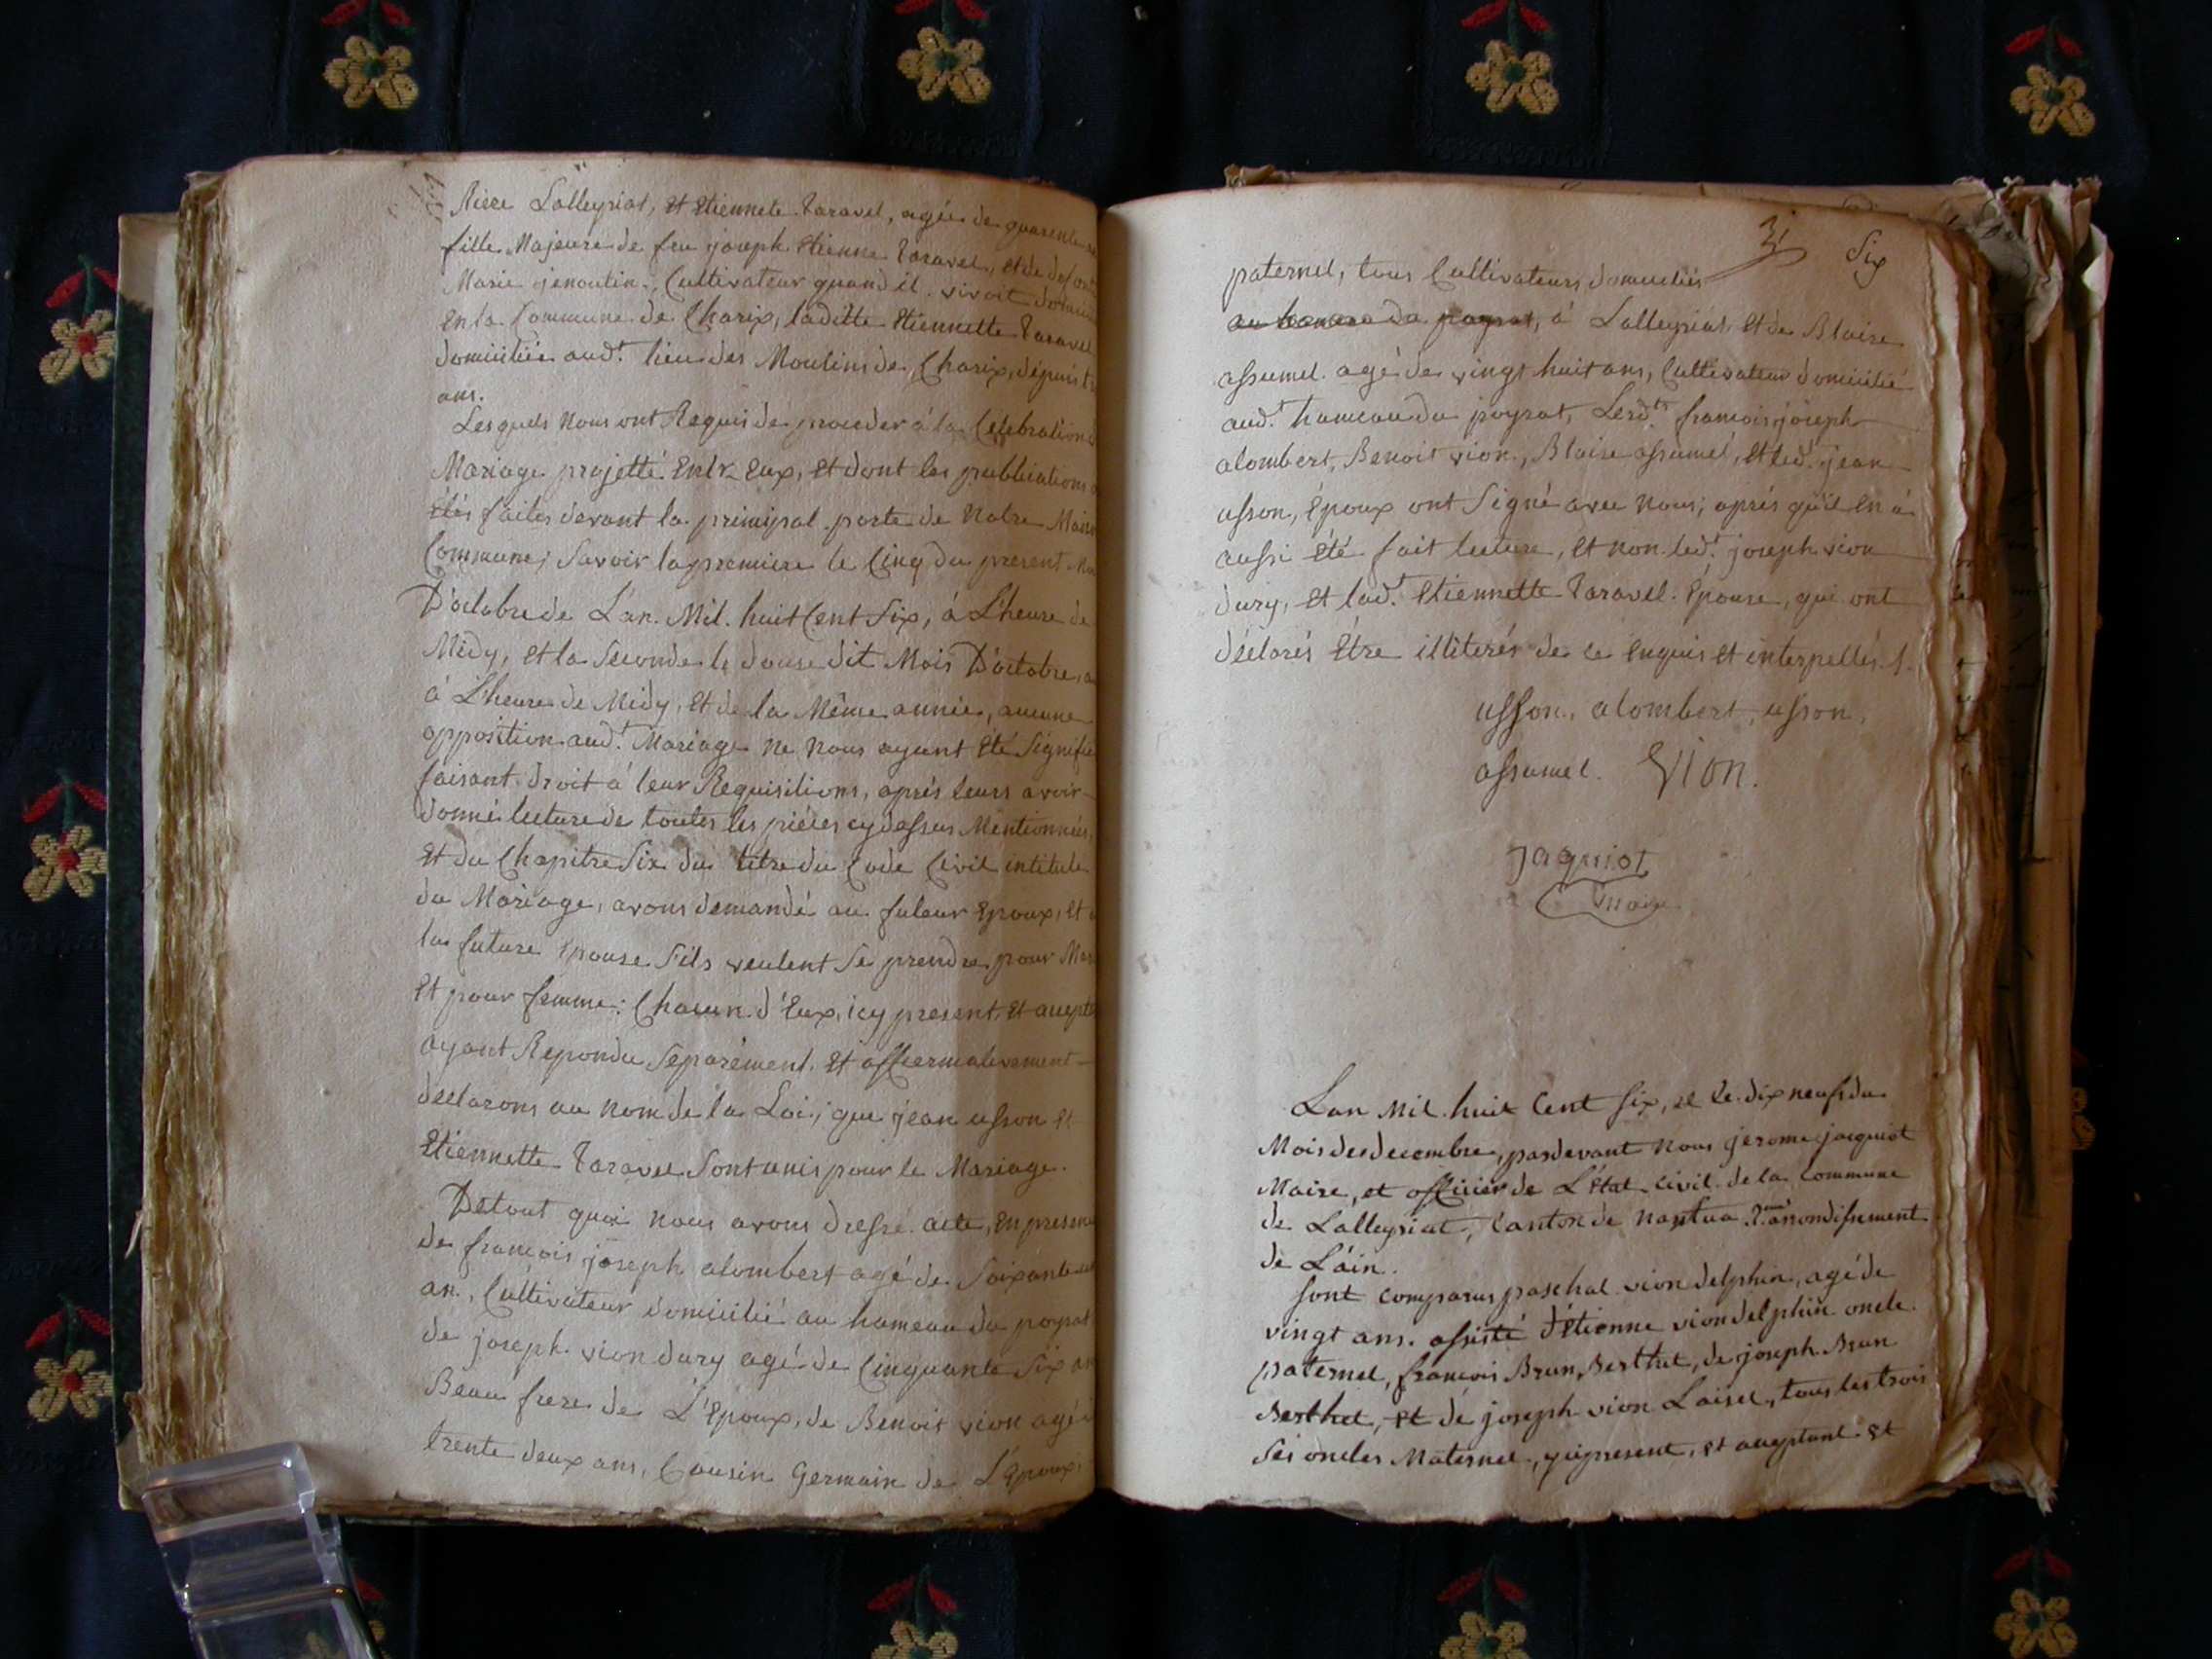 Lalleyriat, et Etiennete Taravel, agée de quarente
fille Majeure de feu joseph Etienne Taravel, et de
Marie jenoulin, Cultivateur quand il vivoit
En la Commune de Charix, laditte Etiennette Taravel
domiciliée aud.t lieu des Moulins de Charix, dépuis
ans.
Lesquels Nous ont Requis de proceder á la Celebration
Mariage projetté Entr Eux, et dont les publications
étés faites devant la principal porte de Notre
Commune; Savoir la premiere le Cinq du present
D'octobre de L'an Mil huit Cent Six, á L'heure de
Midy, et la Seconde le douse dit Mois D'octobre,
á L'heure de Midy, et de la Même année, aucune
opposition aud.t Mariage ne Nous ayant Eté Signifié
faisant droit á leur Requisitions, aprés leurs avoir
donné lecture de toutes les piéces cydessus Mentionnées,
et du Chapitre Six du titre du Code Civil intitulé
du Mariage, avons demandé au futeur Epoux, et
la future Epouse S'ils veulent Se prendre pour
et pour femme: Chacun d'Eux, icy present, et
ayant Repondu Séparément, et affiermativement
declarons au Nom de la Loi, que jean usson et
Etiennette Taravel Sont unis pour le Mariage.
De tout quoi Nous avons dressé acte, En presence
de francois joseph alombert agé de Soixante
an, Cultivateur domicilié au hameau du poyrat
de joseph vion dury agé de Cinquante Six
Beau frere de L'Epoux, de Benoit vion agé
trente deux ans, Cousin Germain de L'Epoux,
3 Six
paternel, tous Cultivateurs domiciliés
au du poyrat, á Lalleyriat et de Blaise
assumel agé de vingt huit ans, Cultivateur domicilié
aud.t hameau du poyrat, Lesd.ts francois joseph
alombert, Benoit vion, Blaise assumel, et led. jean
usson, Epoux ont Signé avec Nous; aprés qu'il en á
aussi été fait lecture, et non led.t joseph vion
dury, et lad.t Etiennette Taravel Epouse, qui ont
déclarés Etre illiterés de ce Enquis et interpellés.
usson, alombert, usson,
assumel. Vion.
jaquiot
Maire
Lan Mil huit Cent Six, et le dix neuf du
Mois de decembre, pardevant Nous jerome jacquiot
Maire, et officier de L'état Civil de la Commune
de Lalleyriat, Canton de Nantua arrondissement
de L'áin.
Sont comparus paschal vion delphin, agé de
vingt ans. assisté d'étienne vion delphin oncle
paternel, francois Brun Berthet, de joseph Brun
Berthet, et de joseph vion Loisel, tous les trois
Ses oncles Maternel, present, et aceptant et